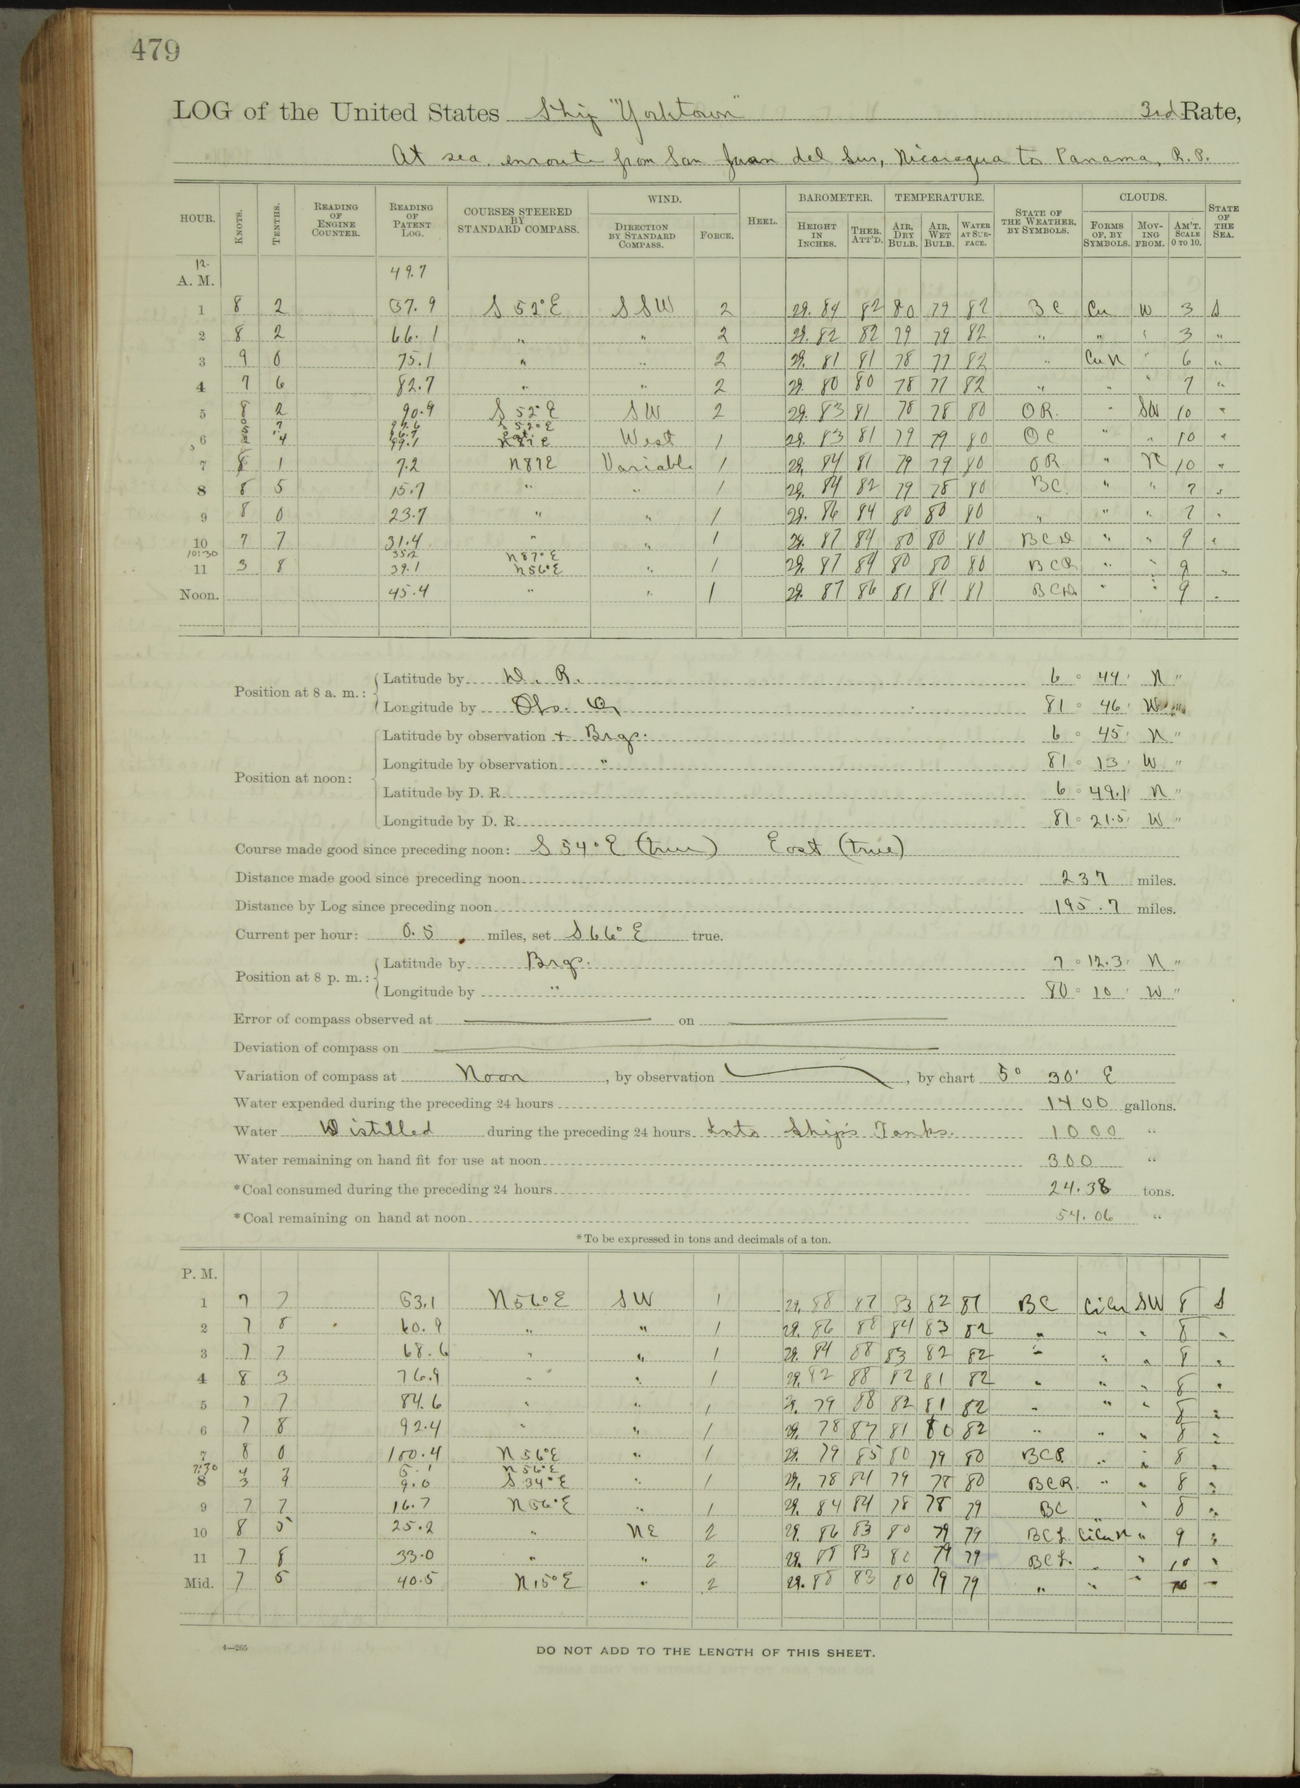 479
LOG of the United States Ship "Yorktown" 3rd Rate,
At sea enroute from San Juan del Sur, Nicaragua to Panama, R.P.
HOUR. KNOTS. TENTHS. READING OF ENGINE COUNTER. READING OF PATENT LOG. COURSES STEERED BY STANDARD COMPASS. WIND. DIRECTION BY STANDARD COMPASS. FORCE. HEEL. BAROMETER. HEIGHT IN INCHES. THER. ATT'D. TEMPERATURE. AIR, DRY BULB. AIR, WET BULB. WATER AT SURFACE. STATE OF THE WEATHER, BY SYMBOLS. CLOUDS. FORMS OF, BY SYMBOLS. MOVING FROM. AM'T. SCALE 0 TO 10. STATE OF THE SEA.
12 A. M. 49.7
1 8 2 57.9 S 52° E SSW 2 29.84 82 80 79 82 BC Cu W 3 S
2 8 2 66.1 " " 2 29.82 82 79 79 82 " " " 3 "
3 9 0 75.1 " " 2 29.81 81 78 77 82 " CuN " 6 "
4 7 6 82.7 " " 2 29.80 80 78 77 82 " " " 7 "
5 8 2 90.9 S 52° E SW 2 29.83 81 78 78 80 OR. " SW 10 "
6 4 99.1 N87E West 1 29.83 81 79 79 80 OC " " 10 "
7 8 1 7.2 N87E Variable 1 29.84 81 79 79 80 OR " N 10 "
8 8 5 15.7 " " 1 29.84 82 79 78 80 BC. " " 7 "
9 8 0 23.7 " " 1 29.86 84 80 80 80 " " " 7 "
10 7 7 31.4 " " 1 29.87 84 80 80 80 BCD " " 9 "
10:30 35.2 N87°E
11 3 8 39.1 N56°E " 1 29.87 84 80 80 80 BCD " " 9 "
Noon. 45.4 " " 1 29.87 86 81 81 81 BCD " " 9 "
Position at 8 a. m.: Latitude by D. R. 6° 44' N"
Longitude by Obs. 81° 46' W"
Position at noon: Latitude by observation + Brgs. 6° 45' N"
Longitude by observation " 81° 13' W"
Latitude by D. R. 6° 49.1' N"
Longitude by D. R. 81° 21.5' W"
Course made good since preceding noon: S 54° E (true) East (true)
Distance made good since preceding noon 237 miles.
Distance by Log since preceding noon 195.7 miles.
Current per hour: 0.5 miles, set S66°E true.
Position at 8 p. m.: Latitude by Brgs. 7° 12.3' N"
Longitude by " 80° 10' W"
Error of compass observed at on
Deviation of compass on
Variation of compass at Noon, by observation, by chart 5° 30' E
Water expended during the preceding 24 hours 1400 gallons.
Water Distilled during the preceding 24 hours Into Ship's Tanks. 1000 "
Water remaining on hand fit for use at noon 300 "
*Coal consumed during the preceding 24 hours 24.38 tons.
*Coal remaining on hand at noon 54.06 "
*To be expressed in tons and decimals of a ton.
P. M.
1 7 7 53.1 N56°E SW 1 29.88 87 83 82 81 BC CiCu SW 8 S
2 7 8 60.9 " " 1 29.86 88 84 83 82 " " " 8 "
3 7 7 68.6 " " 1 29.84 88 83 82 82 " " " 8 "
4 8 3 76.9 " " 1 29.82 88 82 81 82 " " " 8 "
5 7 7 84.6 " " 1 29.79 88 82 81 82 " " " 8 "
6 7 8 92.4 " " 1 29.78 87 81 80 82 " " " 8 "
7 8 0 100.4 N56°E " 1 29.79 85 80 79 80 BCR " " 8 "
7:30 4 7 5.1 N56°E
8 3 9 9.0 S34°E " 1 29.78 84 79 78 80 BCR. " " 8 "
9 7 7 16.7 N56°E " 1 29.84 84 78 78 79 BC " 8 "
10 8 5 25.2 " NE 2 29.86 83 80 79 79 BCL CiCuN " 9 "
11 7 8 33.0 " " 2 29.88 83 80 79 79 BCL. " " 10 "
Mid. 7 5 40.5 N15°E " 2 29.88 83 80 79 79 " " " 10 "
4—265
DO NOT ADD TO THE LENGTH OF THIS SHEET.